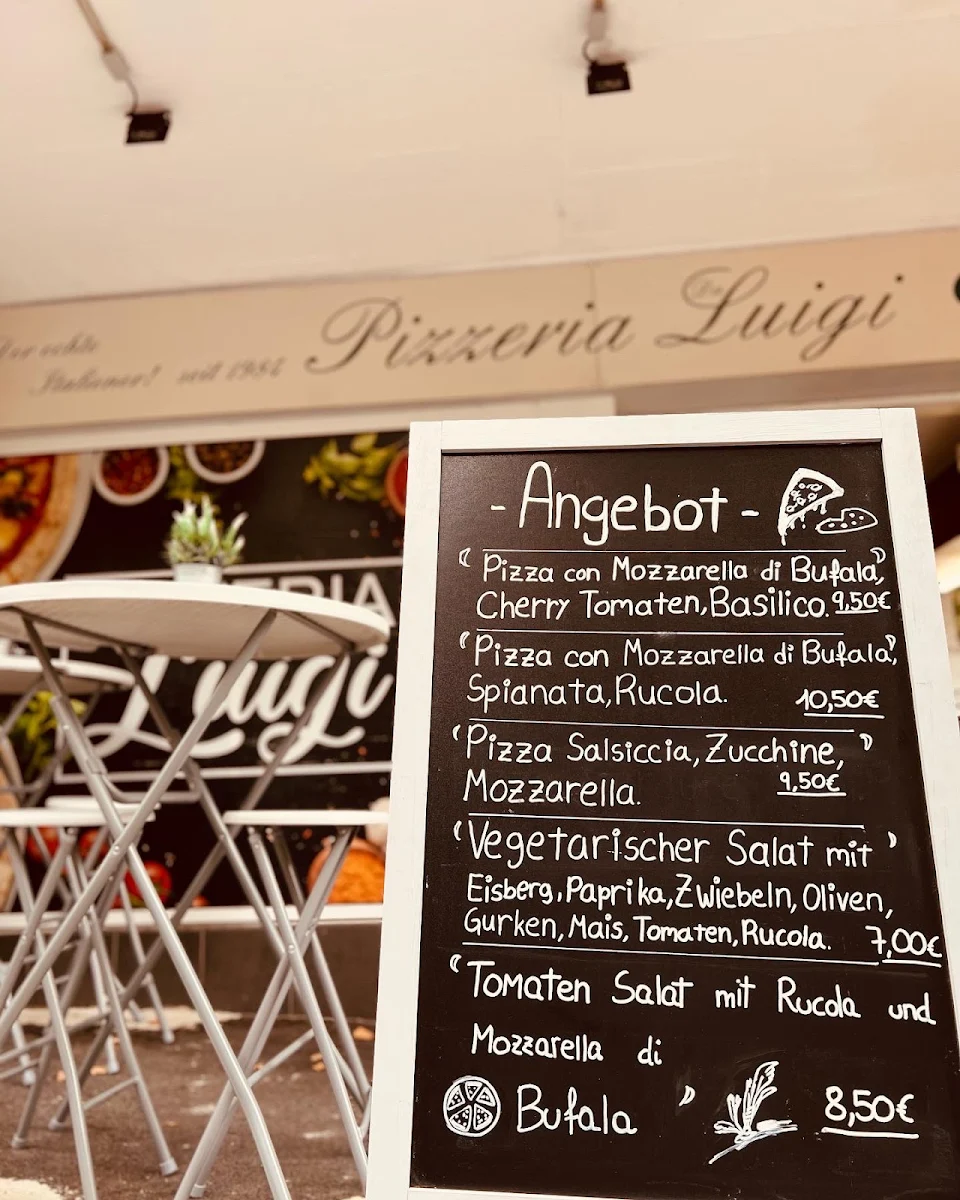 Der echte
Italiener! seit 1984
Pizzeria Da Luigi
ERIA
Luigi
- Angebot -
"Pizza con Mozzarella di Bufala",
Cherry Tomaten, Basilico. 9,50€
"Pizza con Mozzarella di Bufala",
Spianata, Rucola. 10,50€
"Pizza Salsiccia, Zucchine,"
Mozzarella. 9,50€
"Vegetarischer Salat mit"
Eisberg, Paprika, Zwiebeln, Oliven,
Gurken, Mais, Tomaten, Rucola. 7,00€
"Tomaten Salat mit Rucola und
Mozzarella di
Bufala" 8,50€